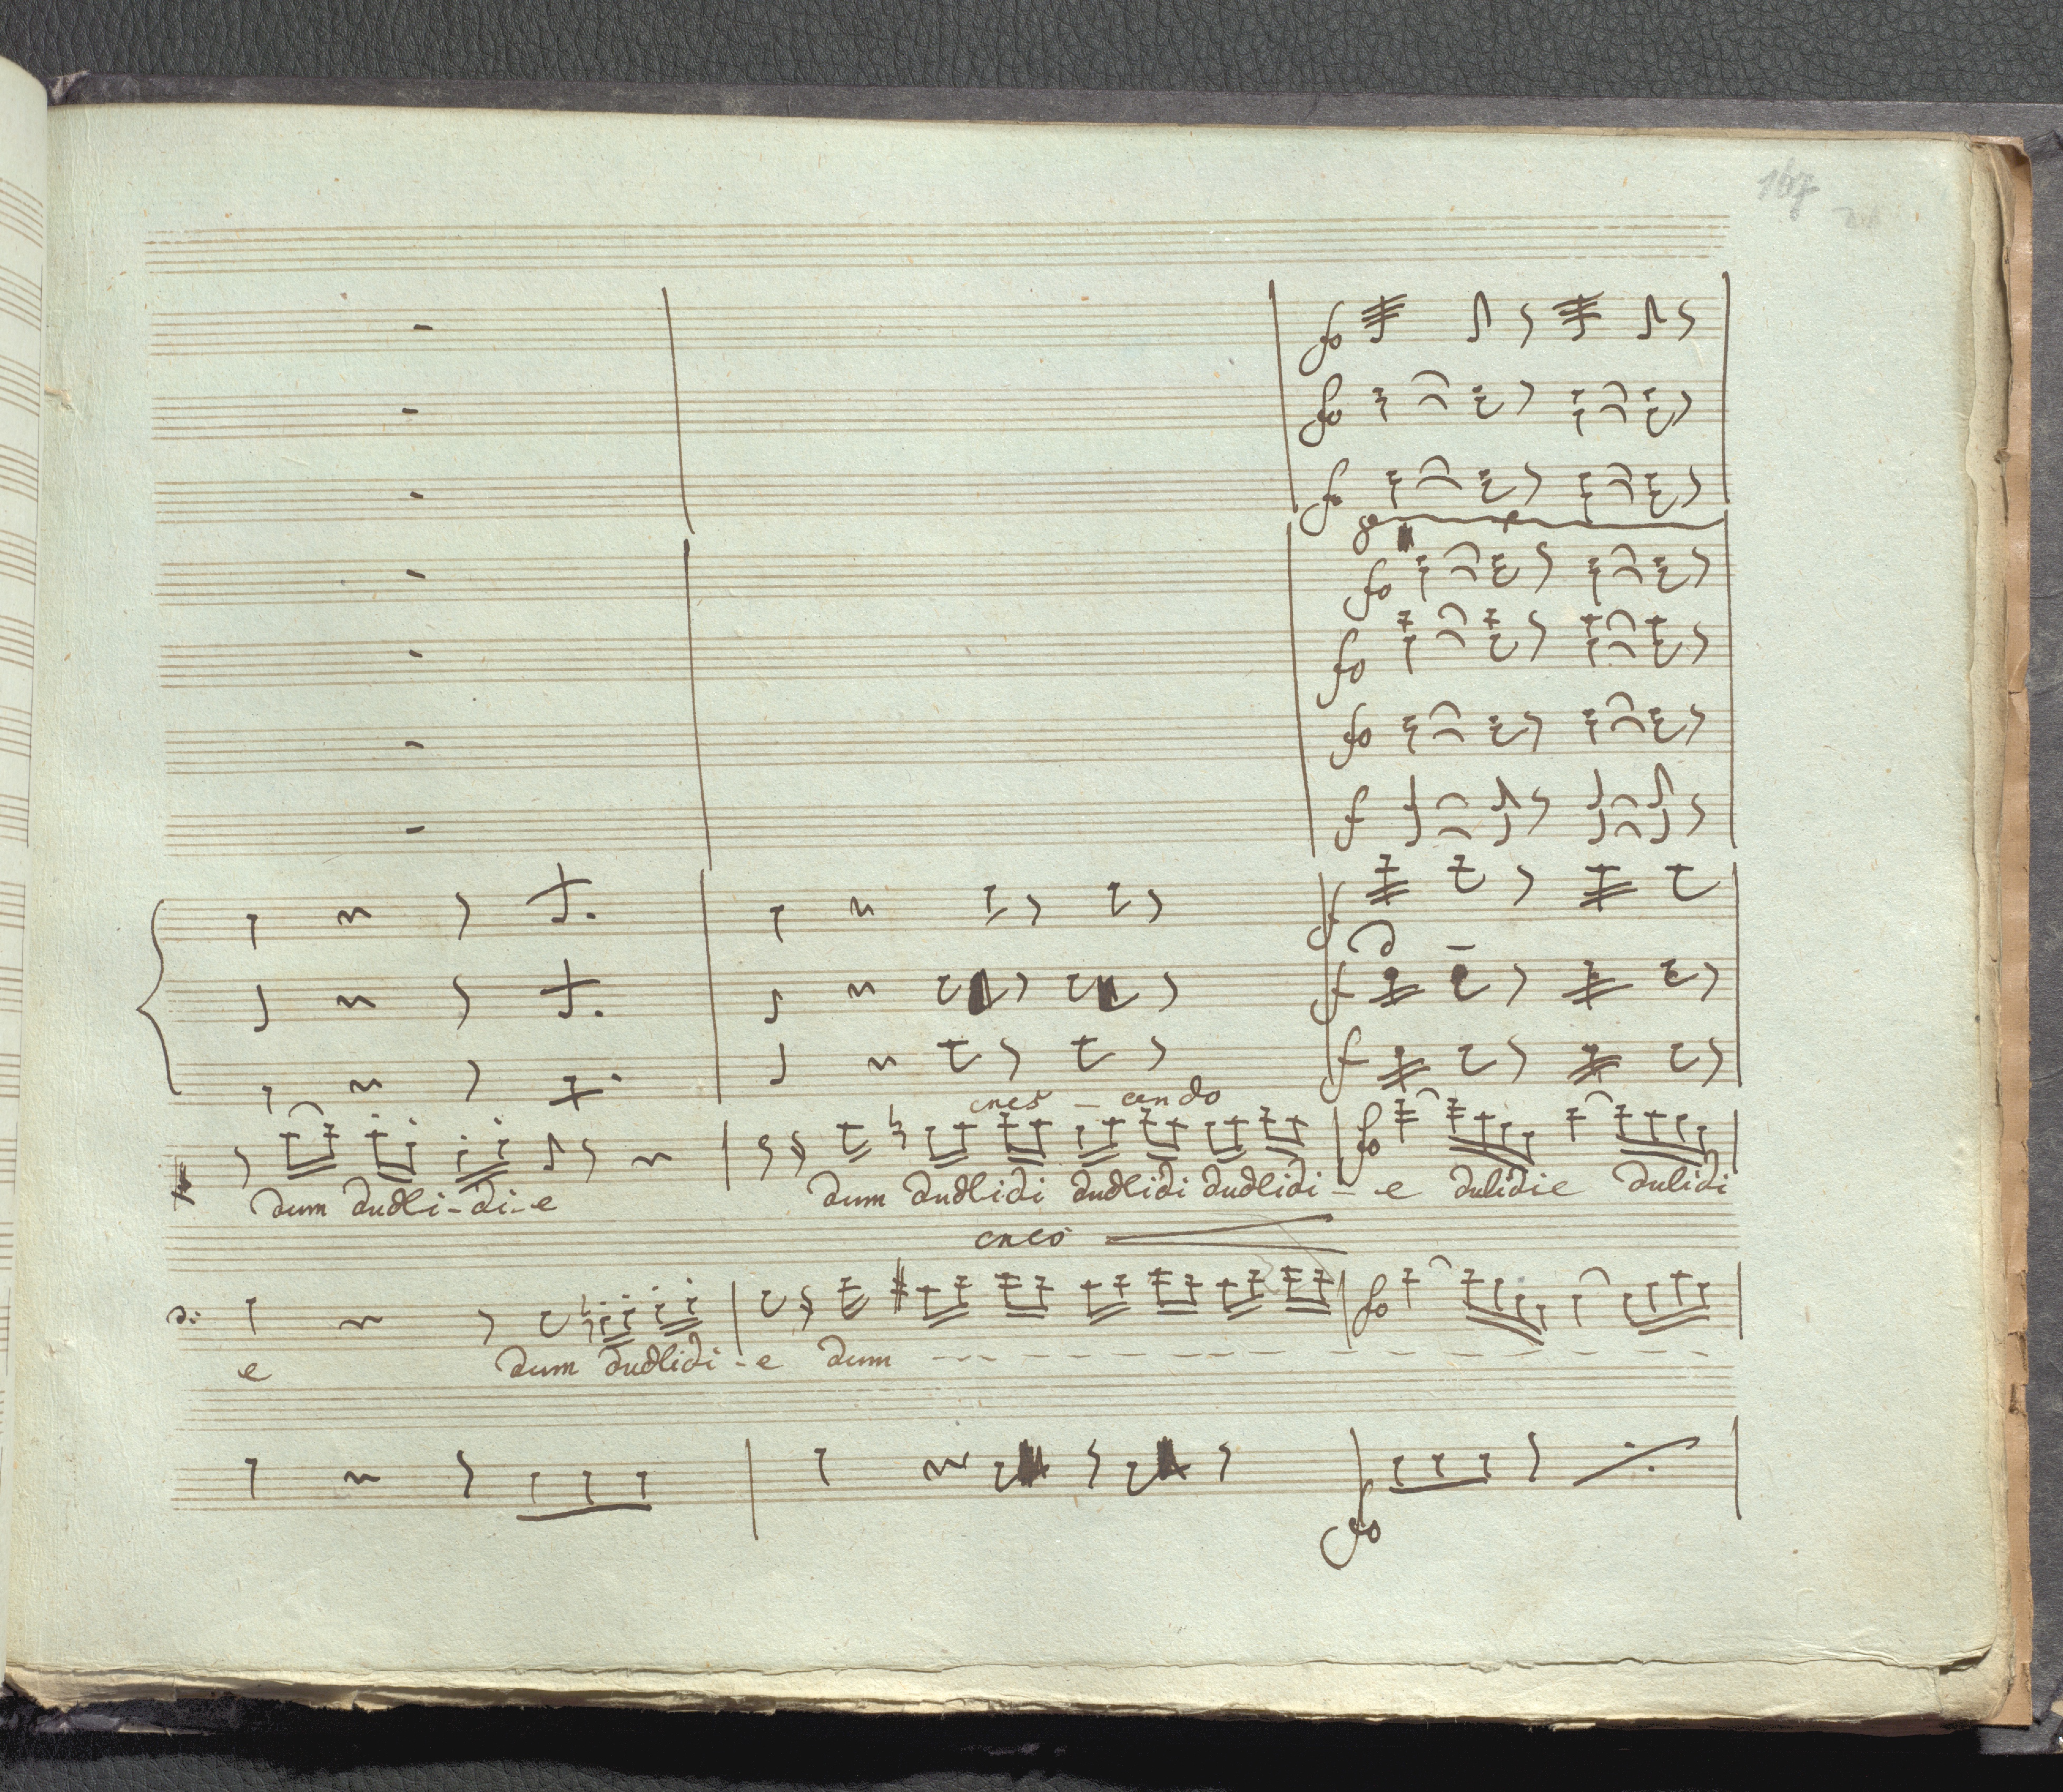 167
fo
fo
fo
8
fo
fo
fo
f
f
f
f
cres - cendo
fo
dum dudli-di-e dum dudlidi dudlidi dudlidi - e dulidie dulidi
cres
fo
e dum dudlidi-e dum
fo